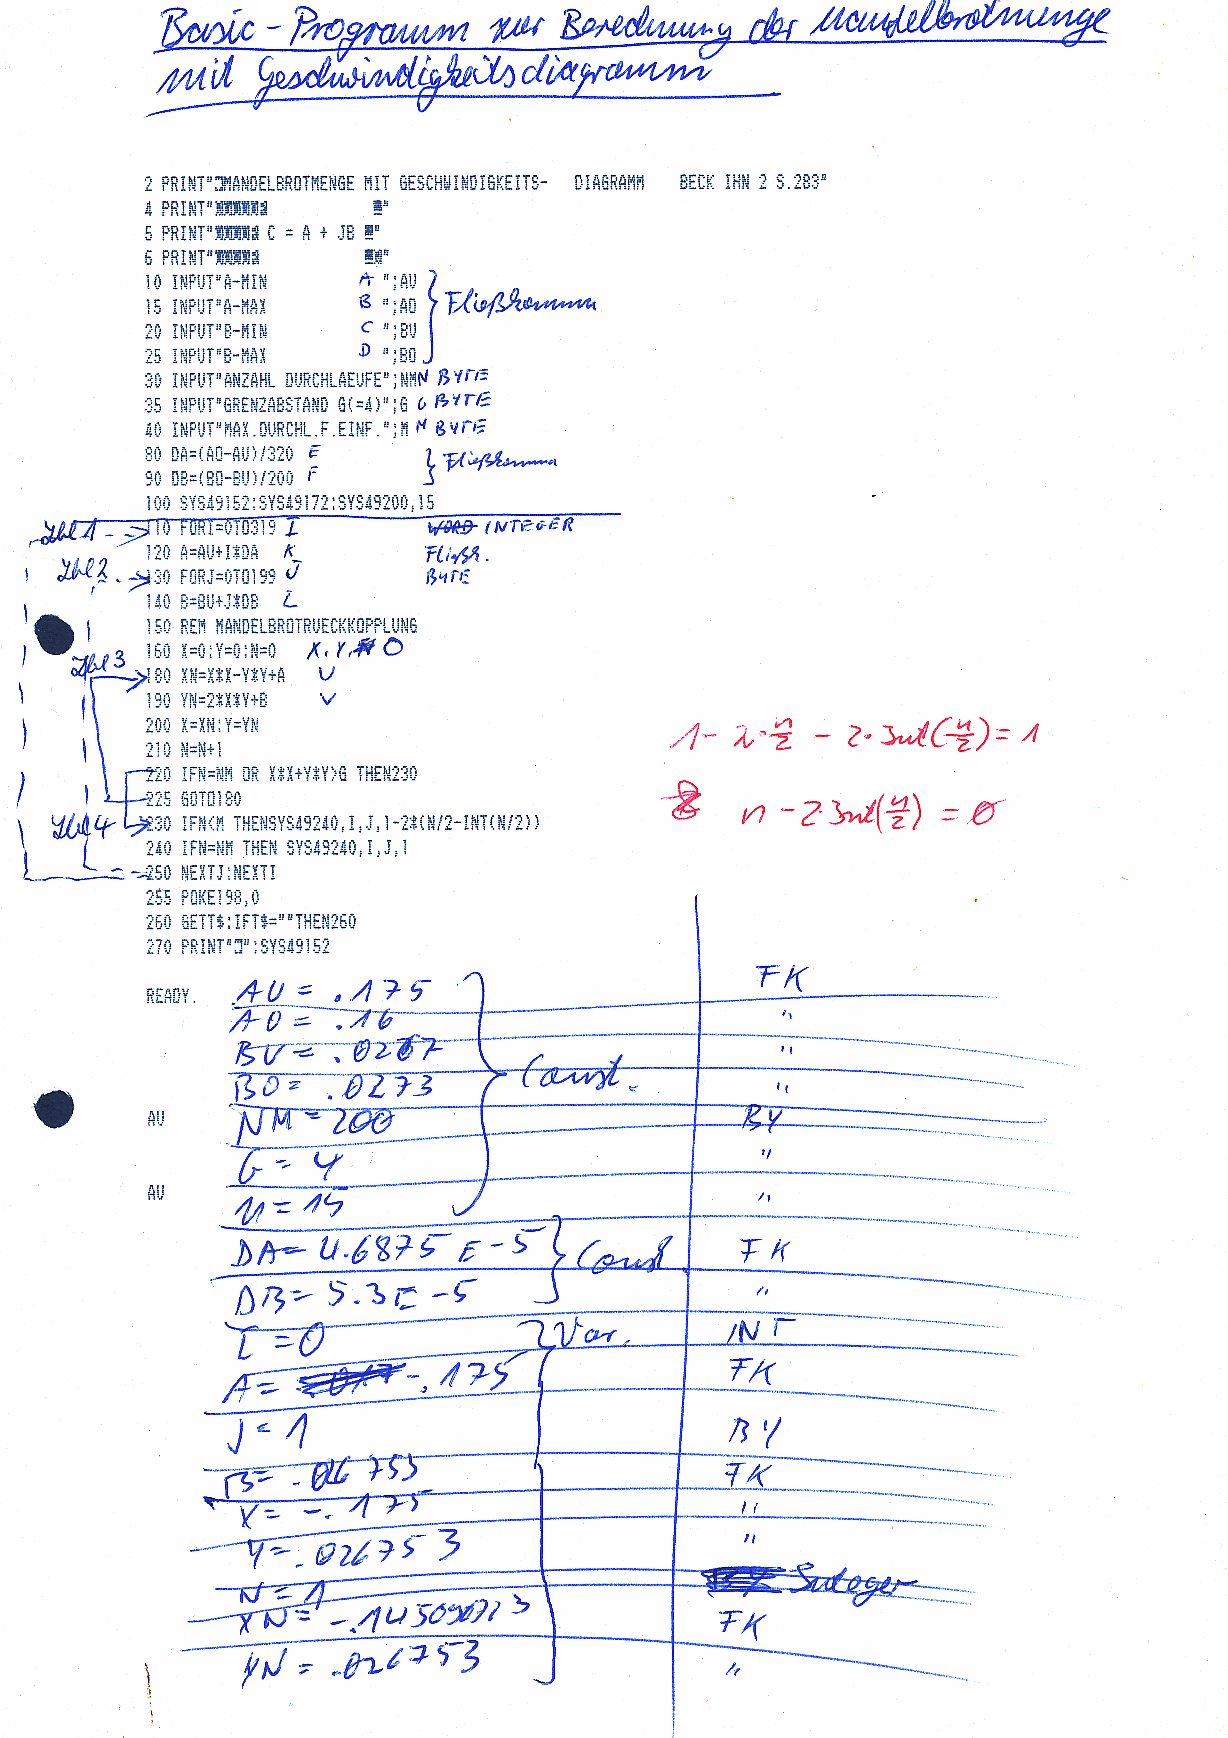 Basic-Programm zur Berechnung der Mandelbrotmenge
mit Geschwindigkeitsdiagramm
2 PRINT"MANDELBROTMENGE MIT GESCHWINDIGKEITS-   DIAGRAMM    BECK IHN 2 S.283"
4 PRINT" "
5 PRINT" C = A + JB "
6 PRINT" "
10 INPUT"A-MIN A ";AU
15 INPUT"A-MAX B ";AO } Fließkomma
20 INPUT"B-MIN C ";BU
25 INPUT"B-MAX D ";BO
30 INPUT"ANZAHL DURCHLAEUFE";NM N BYTE
35 INPUT"GRENZABSTAND G(=4)";G G BYTE
40 INPUT"MAX.DURCHL.F.EINF.";M M BYTE
80 DA=(AO-AU)/320 E } Fließkomma
90 DB=(BO-BU)/200 F
100 SYS49152:SYS49172:SYS49200,15
Lbl 1 110 FORI=0TO319 I WORD INTEGER
120 A=AU+I*DA K Fließk.
Lbl 2 130 FORJ=0TO199 J BYTE
140 B=BU+J*DB L
150 REM MANDELBROTRUECKKOPPLUNG
160 X=0:Y=0:N=0 X, Y, O
Lbl 3
180 XN=X*X-Y*Y+A U
190 YN=2*X*Y+B V
200 X=XN:Y=YN
210 N=N+1
1 - 2·n/2 - 2·Int(n/2) = 1
220 IFN=NM OR X*X+Y*Y>G THEN230
225 GOTO180
n - 2·Int(n/2) = 0
Lbl 4 230 IFN<M THENSYS49240,I,J,1-2*(N/2-INT(N/2))
240 IFN=NM THEN SYS49240,I,J,1
250 NEXTJ:NEXTI
255 POKE198,0
260 GETT$:IFT$=""THEN260
270 PRINT"":SYS49152
READY. AU = .175 FK
AO = .16 "
BU = .0267 "
Const.
BO = .0273 "
AU NM = 200 BY
G = 4 "
AU M = 15 "
DA = 4.6875 E-5 } Const FK
DB = 5.3E-5 "
I = 0 } Var. INT
A = -.175 FK
J = 1 BY
B = .026753 FK
X = -.175 "
Y = .026753 "
N = 1 Integer
XN = FK
YN = .026753 "